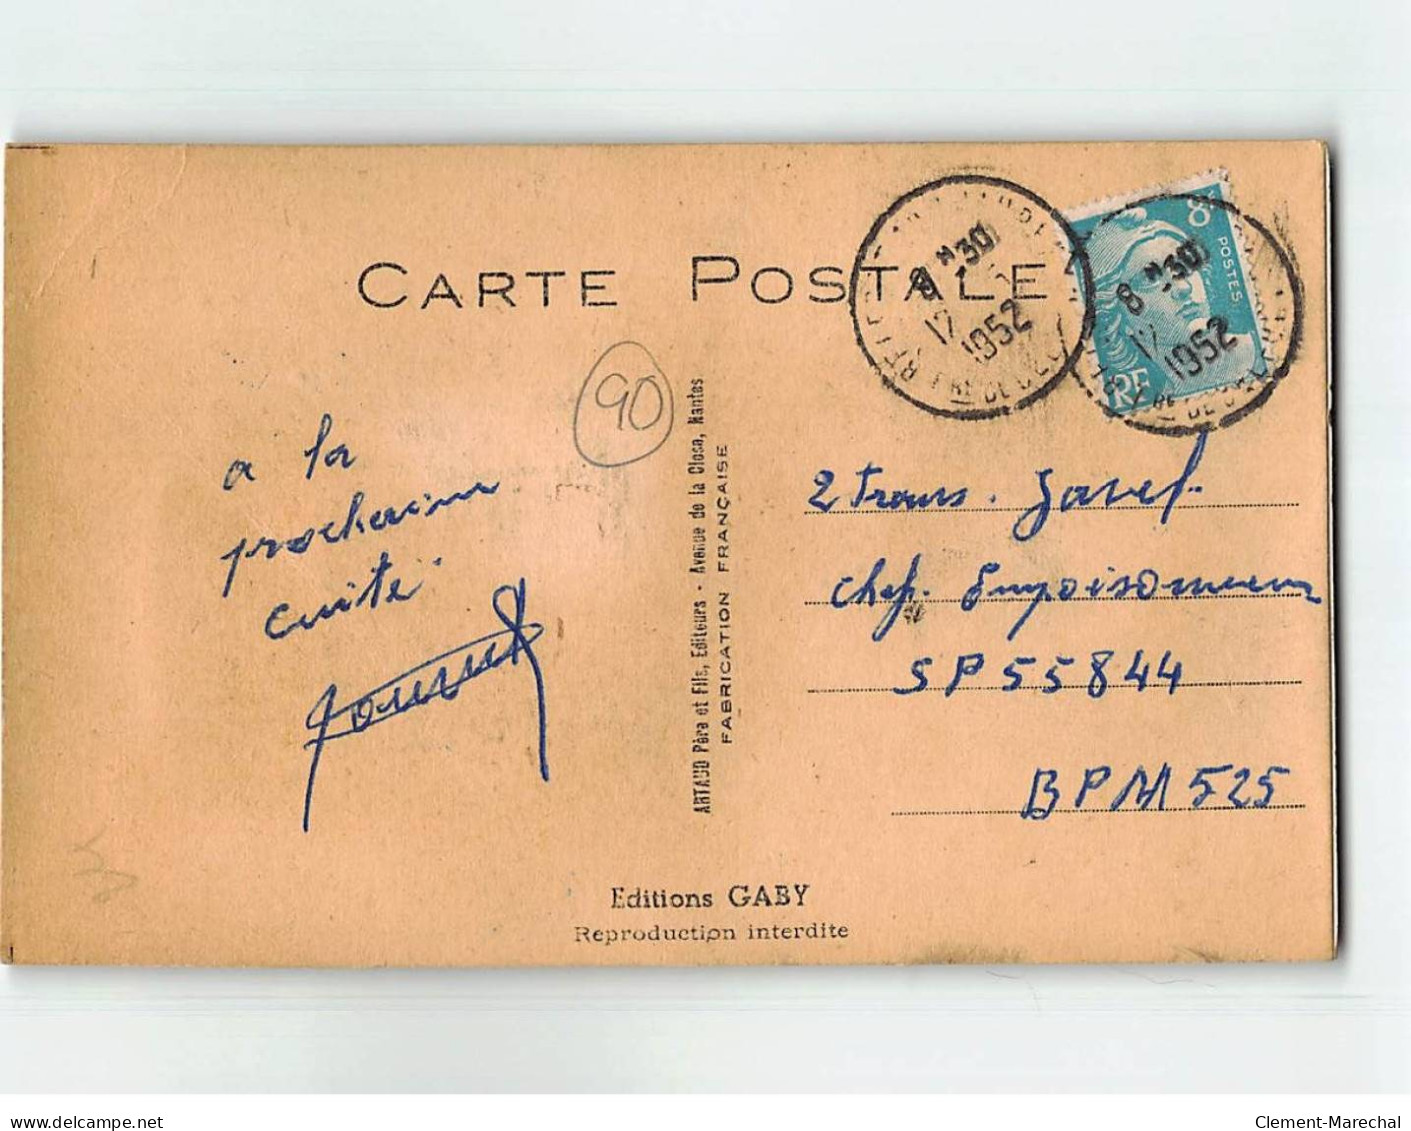 CARTE POSTALE
8 H 30
1952
8F
POSTES
RF
8 H 30
1952
90
a la
prochaine
cuite
ARTAUD Père et Fils, Editeurs - Avenue de la Close, Nantes
FABRICATION FRANÇAISE
2 Trans. Javel.
Chef. Empoisonneur
SP 55844
BPM 525
Editions GABY
Reproduction interdite
delcampe.net
Clement-Marechal